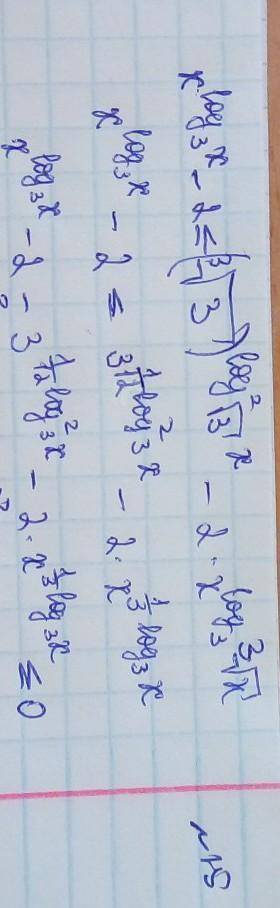 №15
x^{log_3 x} - 2 ≤ (\sqrt[3]{3})^{log^2_{\sqrt{3}} x} - 2 · x^{log_3 \sqrt[3]{x}}
x^{log_3 x} - 2 ≤ 3^{\frac{1}{12} log^2_3 x} - 2 · x^{\frac{1}{3} log_3 x}
x^{log_3 x} - 2 - 3^{\frac{1}{12} log^2_3 x} - 2 · x^{\frac{1}{3} log_3 x} ≤ 0